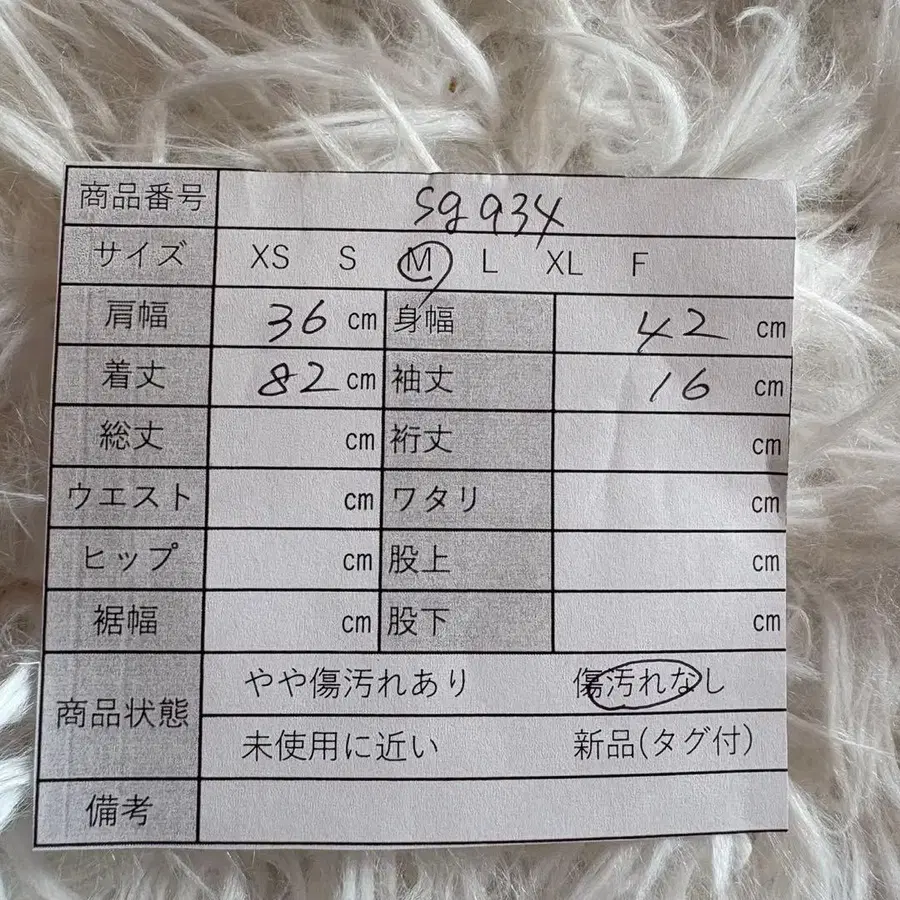 商品番号 sg934
サイズ XS S M L XL F
肩幅 36 cm 身幅 42 cm
着丈 82 cm 袖丈 16 cm
総丈 cm 裄丈 cm
ウエスト cm ワタリ cm
ヒップ cm 股上 cm
裾幅 cm 股下 cm
商品状態 やや傷汚れあり 傷汚れなし
未使用に近い 新品(タグ付)
備考